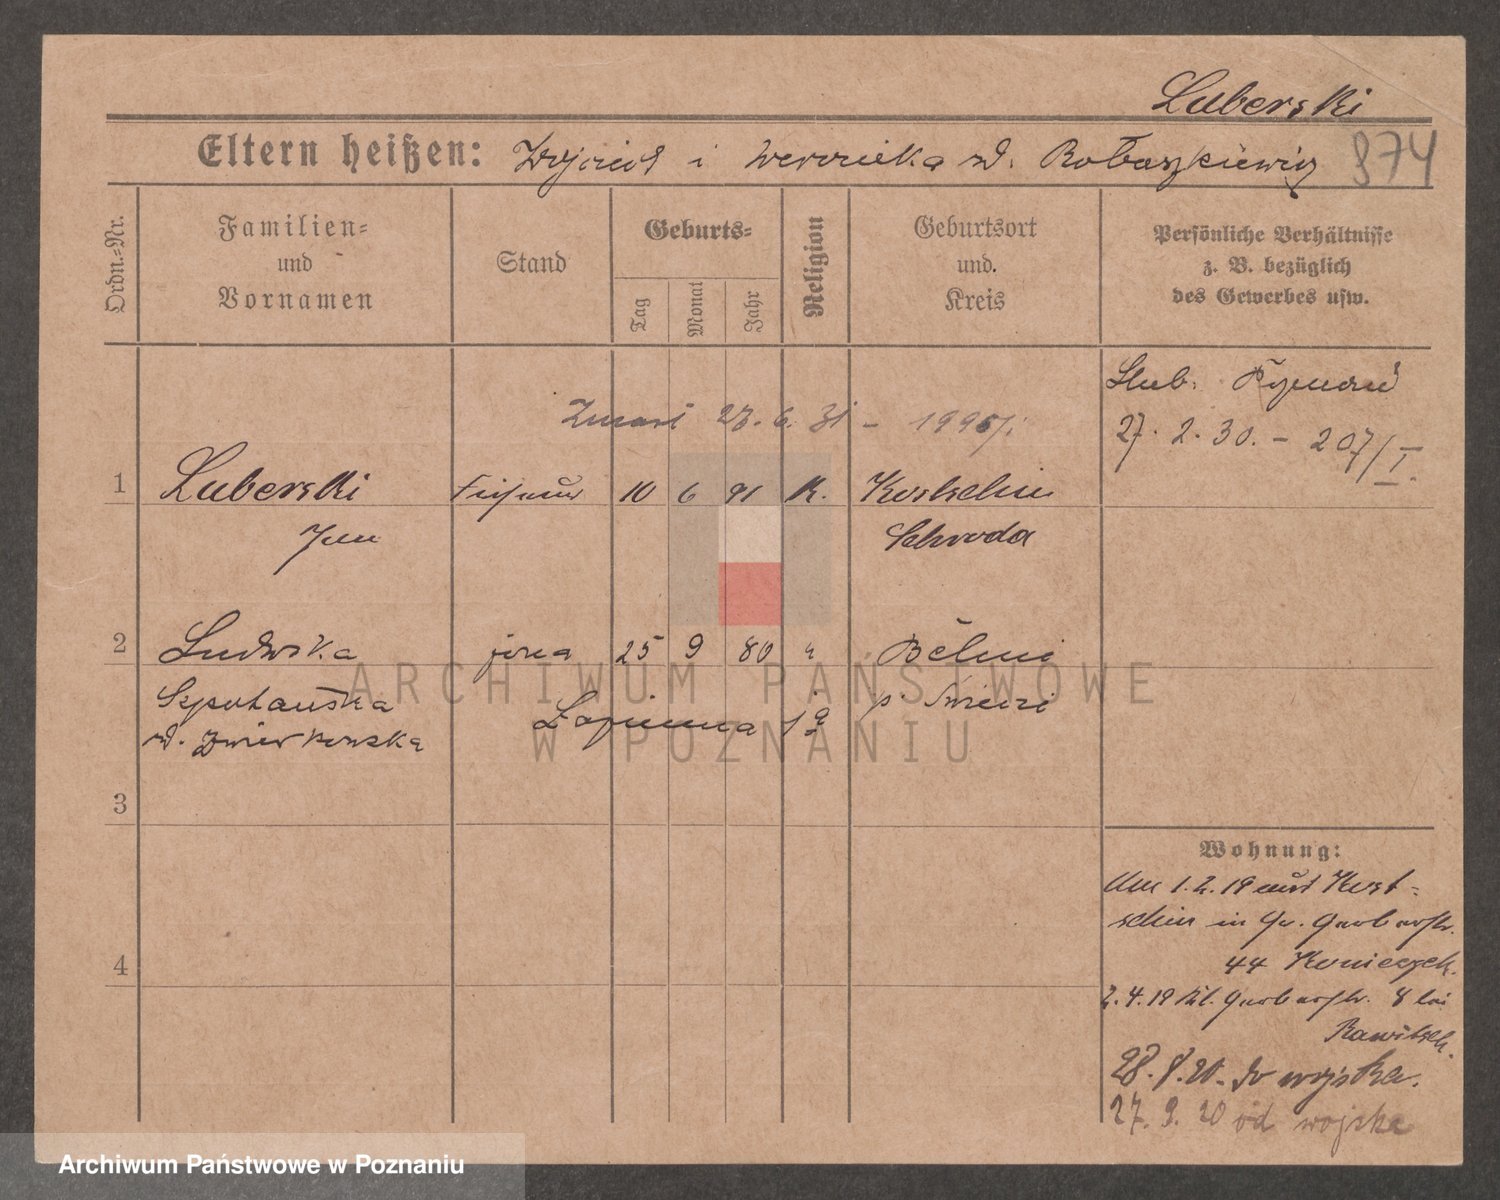 Luberski
Eltern heißen: Wojciech i Weronika z d. Robaszkiewicz 874
Ordn.-Nr.
Familien-
und
Vornamen
Stand
Geburts-
Tag
Monat
Jahr
Religion
Geburtsort
und.
Kreis
Persönliche Verhältnisse
z. B. bezüglich
des Gewerbes usw.
Ślub. Poznań
27. 2. 30. - 207/I.
Zmarł 27. 6. 31 -
1 Luberski 10 6 91 K. Kostschin
Jan Schroda
2 Ludwika żona 25 9 80
ARCHIWUM PAŃSTWOWE
W POZNANIU
3
4
Wohnung:
Am 1. 2. 19 aus Kost-
schin in Gr. Gerberstr.
44 Konieczek.
2. 4. 19 Kl. Gerberstr. 8 bei
Rawitsch.
28. 8. 20. do wojska.
27. 9. 20 od wojska
Archiwum Państwowe w Poznaniu